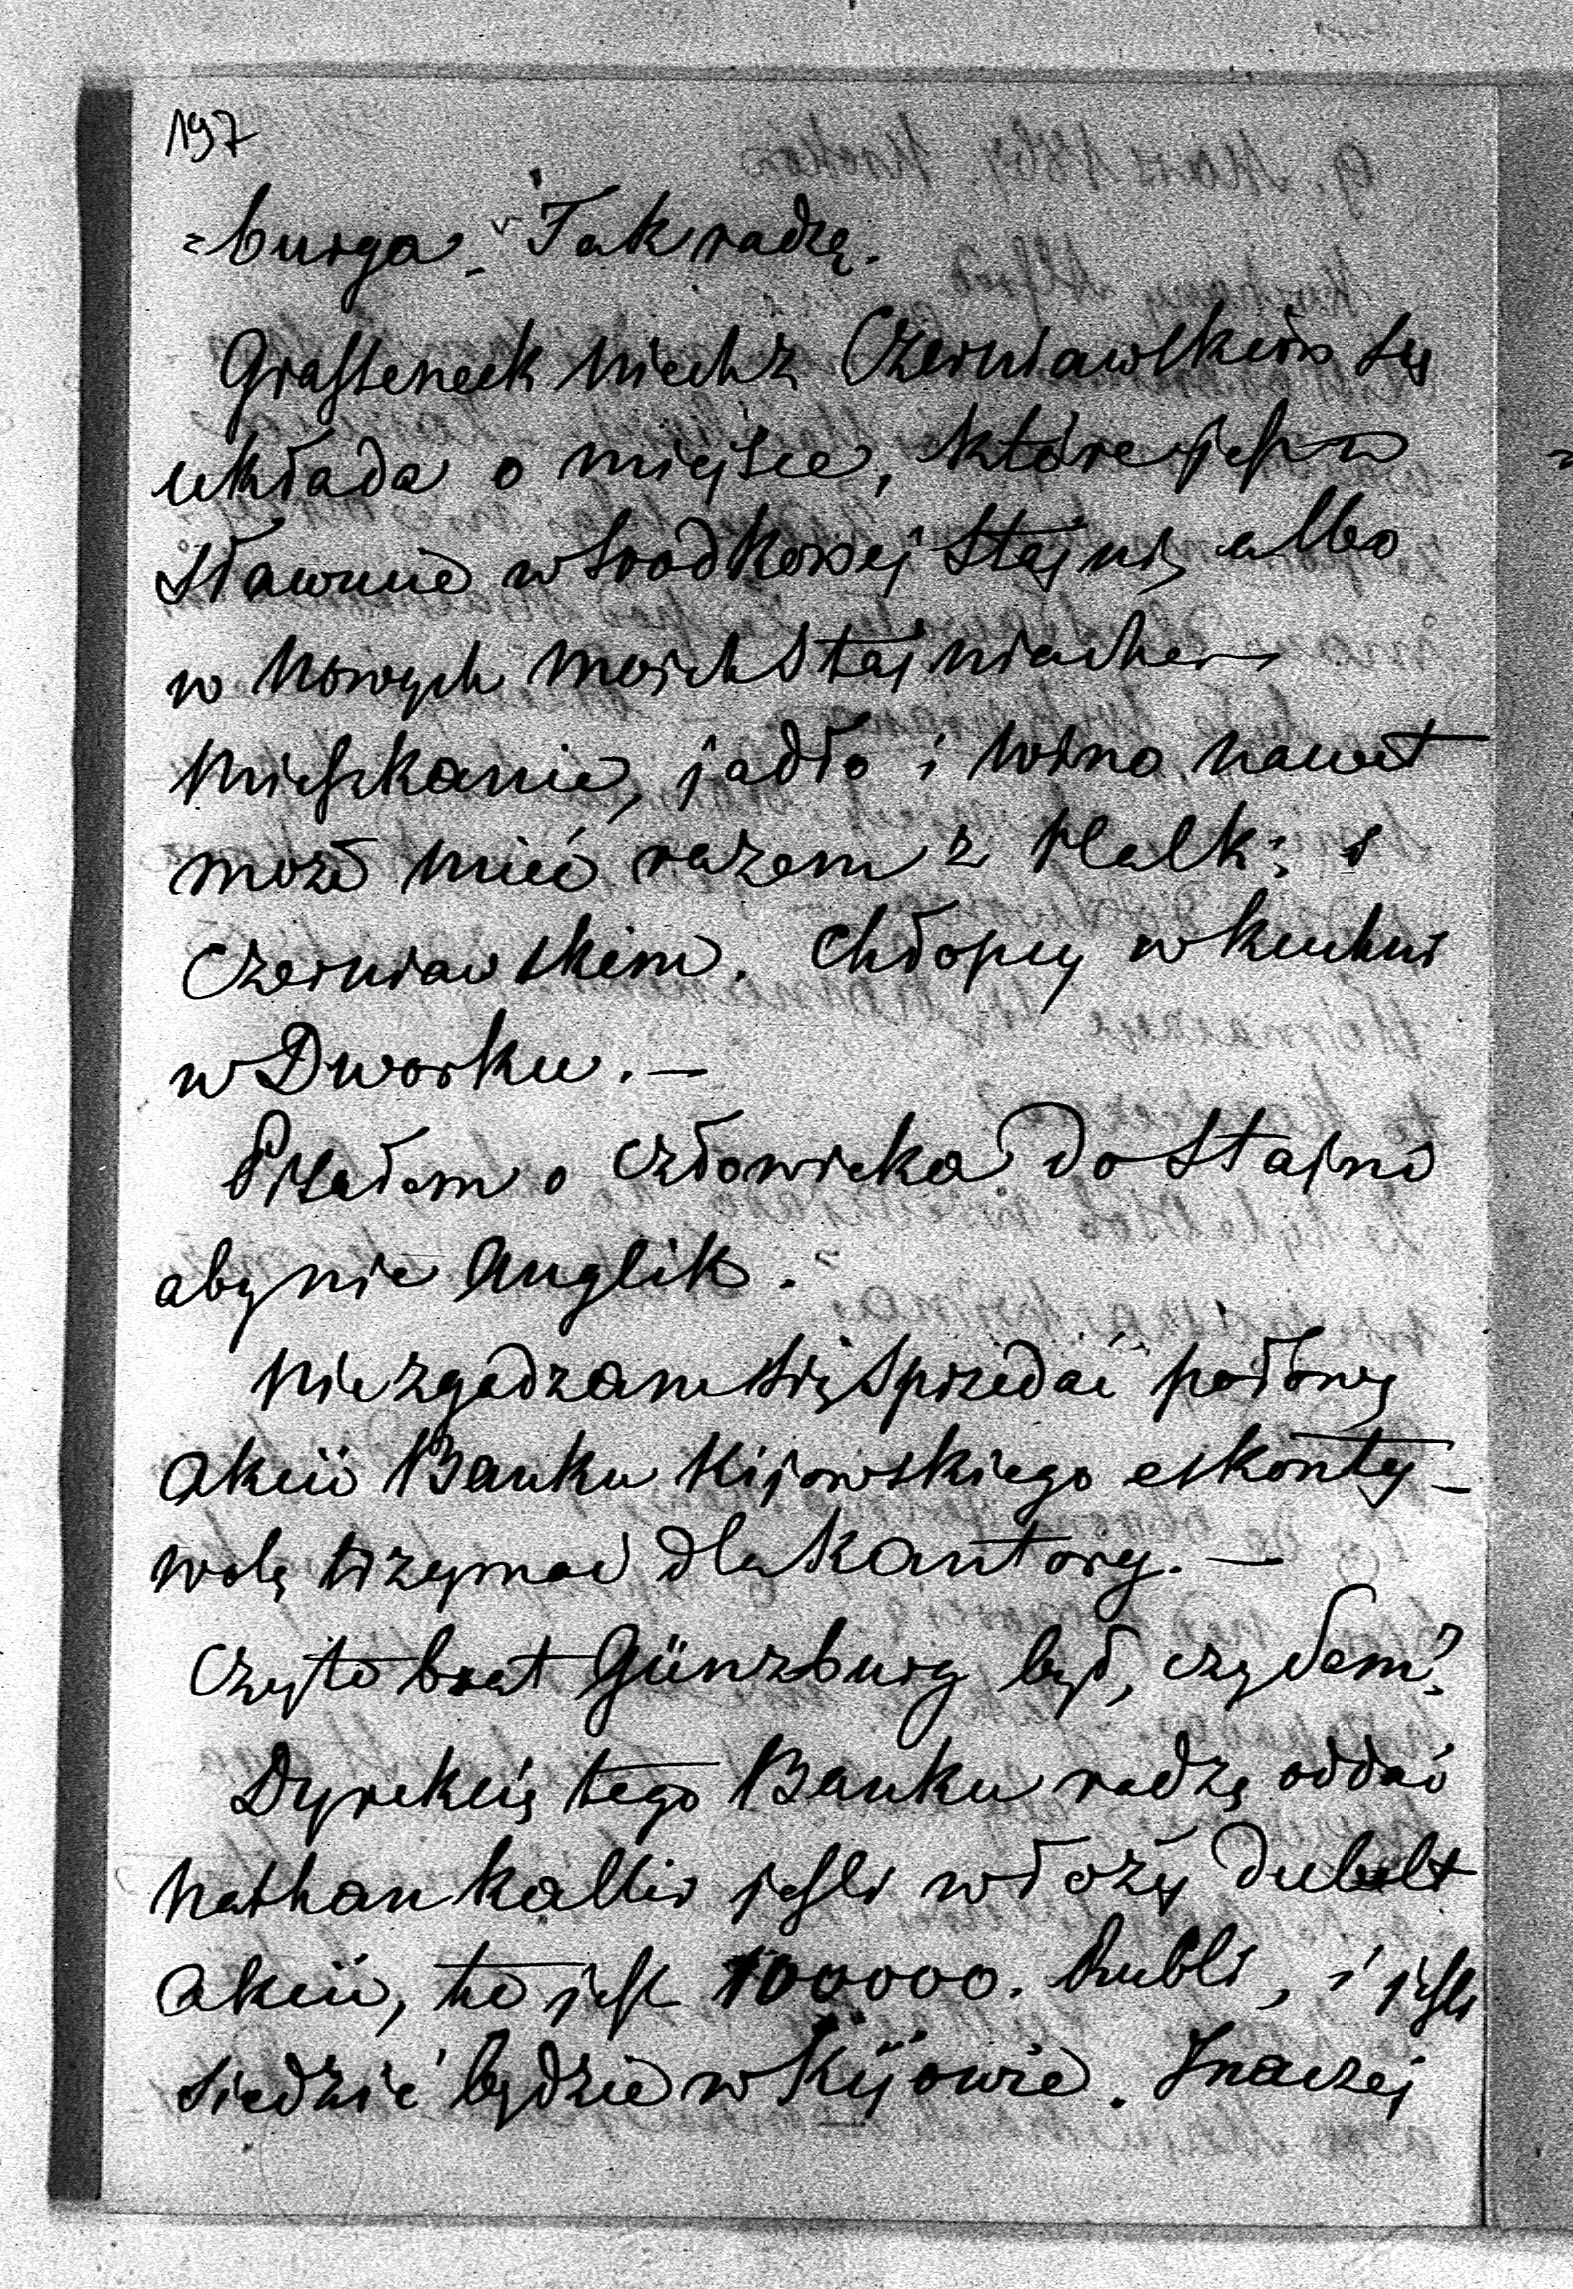 197
=burga. Tak radzę.
Grafseneck niech z Czerniawskim się
układa o miejsce, które jest w
Sławucie w środkowej stajni, albo
w nowych moich stajniach
mieszkanie, jadło i wino nawet
może mieć razem z Malk: i
Czerniawskim. Chłopcy w kuchni
w Dworku. —
Pisałem o człowieka do stajni
aby nie Anglik.
Nie zgadzam się sprzedać połowy
akcii Banku Kijowskiego eskonty-
wolę trzymać dla kantory. —
Czy to brat Günzburg był, czy sam?
Dyrekcię tego Banku radzę oddać
Nathan Kallir jeśli włoży dubelt
akcii, to jest 100000. Rubli, i jeśli
siedzieć będzie w Kijowie. Inaczej